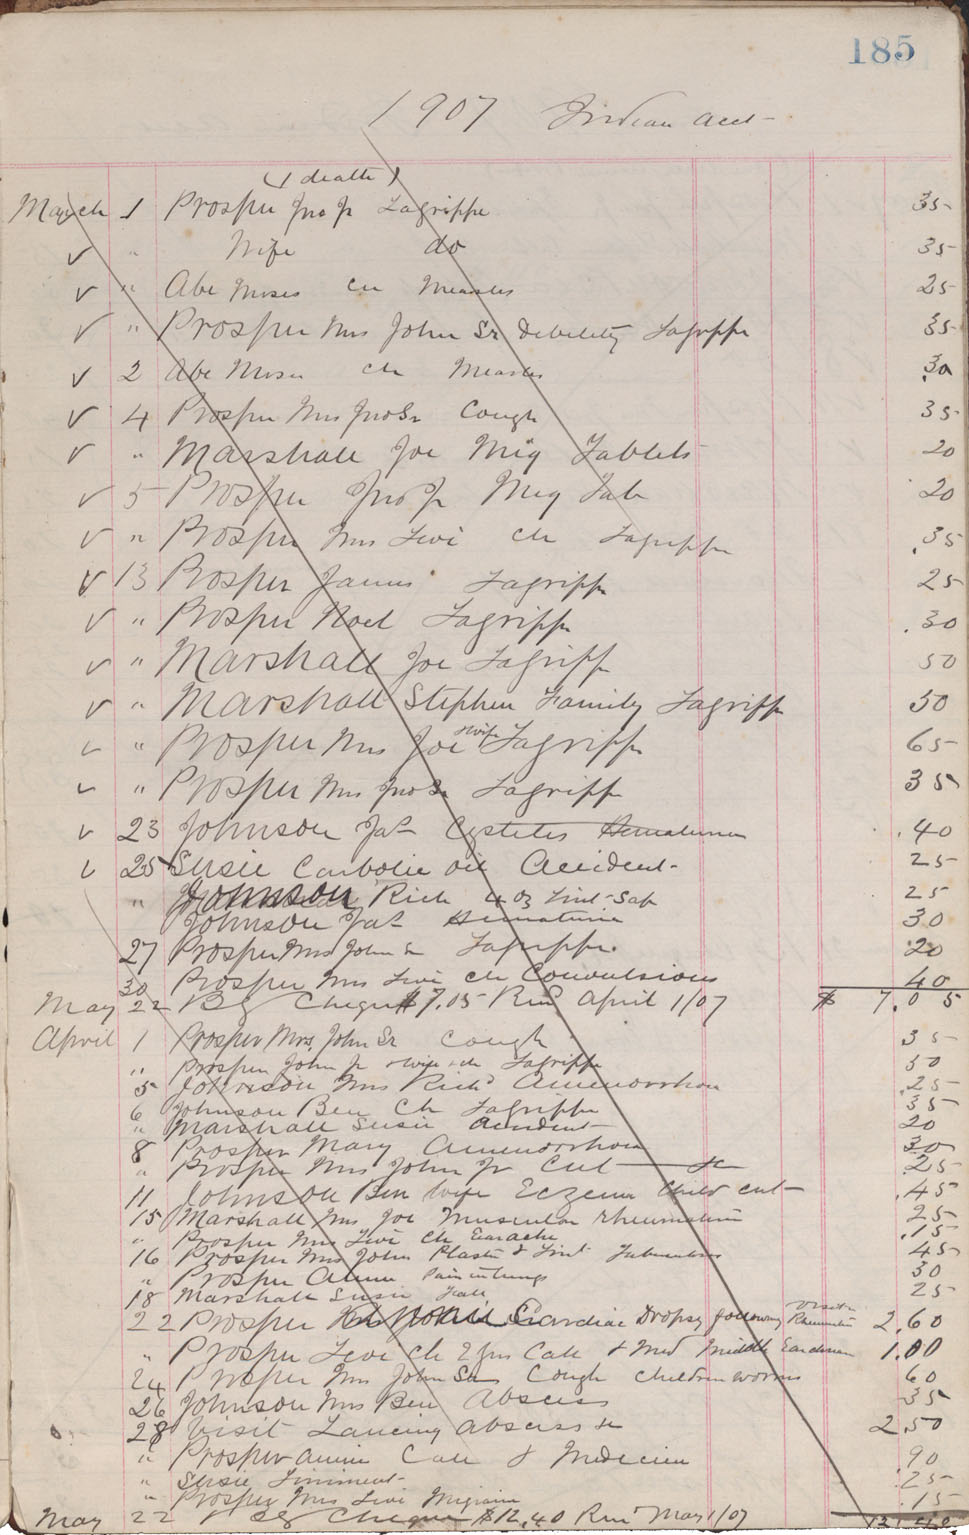 185
1907 Indian acct
(1 death)
March 1 Prosper Jno Jr Lagrippe 35
✓ " Wife do 35
✓ " Abe Moses ch Measles 25
✓ " Prosper Mrs John Sr Debility Lagrippe 35
✓ 2 Abe Moses ch Measles 30
✓ 4 Prosper Mrs Jno Sr Cough 35
✓ " Marshall Joe Mig Tablets 20
✓ 5 Prosper Jno Jr Mig Tab 20
✓ " Prosper Mrs Levi ch Lagrippe .35
✓ 13 Prosper James Lagripp 25
✓ " Prosper Noel Lagripp .30
✓ " Marshall Joe Lagripp 50
✓ " Marshall Stephen Family Lagripp 50
✓ " Prosper Mrs Joe & wife Lagripp 65
✓ " Prosper Mrs Jno Sr Lagripp 35
✓ 23 Johnson Jas Cystetes Hematuria .40
✓ 25 Susie Carbolic oil Accident 25
" Johnson Rich 4 oz Lint Sap 25
Johnson Jas Hematuria 30
27 Prosper Mrs John Sr Lagrippe 20
30 Prosper Mrs Levi ch Convulsions 40
May 22 By Cheque $7.05 Rend April 1/07 $ 7.05
April 1 Prosper Mrs. John Sr Cough 35
" Prosper John Jr & wife & ch Lagrippe 50
5 Johnson Mrs Richd Amenorrhoea .25
6 Johnson Ben Ch Lagrippe 35
" Marshall Susie Accident 20
8 Prosper Mary Amenorrhoea 30
" Prosper Mrs John Jr Cut &c .25
11 Johnson Ben wife Eczema Child cut .45
15 Marshall Mrs Joe Muscular rheumatism 25
" Prosper Mrs Levi Ch Earache .15
16 Prosper Mrs John Plaster & Lint 45
" Prosper Annie Pain in lungs 30
18 Marshall Susie Fall 25
22 Prosper Cardiac Dropsy following Rheumatism Visit 2.60
" Prosper Levi Ch 2 yrs Call & Med Middle Ear 1.00
24 Prosper Mrs John Sr Cough children worms 60
26 Johnson Mrs Ben Abscess 35
28 Visit Lancing abscess &c 2.50
" Prosper Annie Call & Medicine .90
" Susie Liniment .25
" Prosper Mrs Levi Migraine .15
May 22 By Cheque $12.40 Rend May 1/07